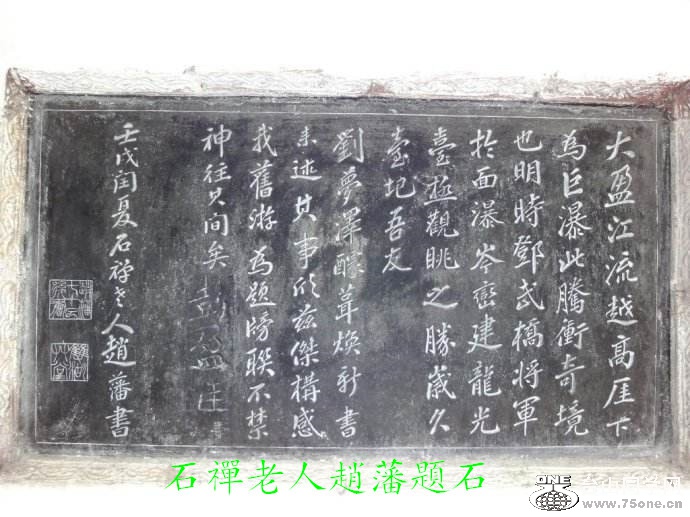 大盈江流越高厓下
為巨瀑此騰衝奇境
也明時鄧武橋將軍
於面瀑岑巒建龍光
臺極觀眺之勝歲久
臺圮吾友
劉夢澤醵葺煥新書
來述其事欣茲傑構感
我舊游為題牓聯不禁
神往其間矣
壬戌閏夏石禪老人趙藩書
石禪老人趙藩題石
ONE
www.75one.cn